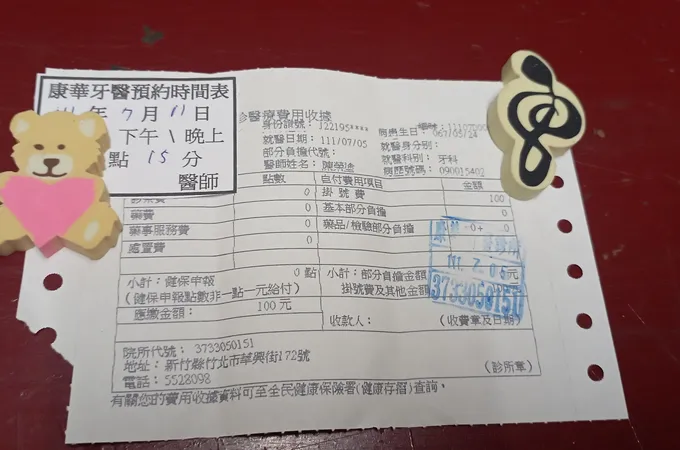 康華牙醫預約時間表
年 7 月 11 日
下午 \ 晚上
點 15 分
醫師
診醫療費用收據
身份證號: J22195****
就醫日期: 111/07/05
就醫身分別:
部分負擔代號:
就醫科別: 牙科
醫師姓名:
病歷號碼: 090015402
點數 自付費用項目 金額
0 掛 號 費 100
藥費 0 基本部分負擔 0
藥事服務費 0 藥品/檢驗部分負擔 0+ 0
處置費 0
小計:健保申報 0 點 小計:部分負擔金額 元
(健保申報點數非一點一元給付) 掛號費及其他金額
應繳金額: 100 元
收款人: (收費章及日期)
3733050151
院所代號: 3733050151
地址: 新竹縣竹北市華興街172號
電話: 5528098 (診所章)
有關您的費用收據資料可至全民健康保險署(健康存摺)查詢。